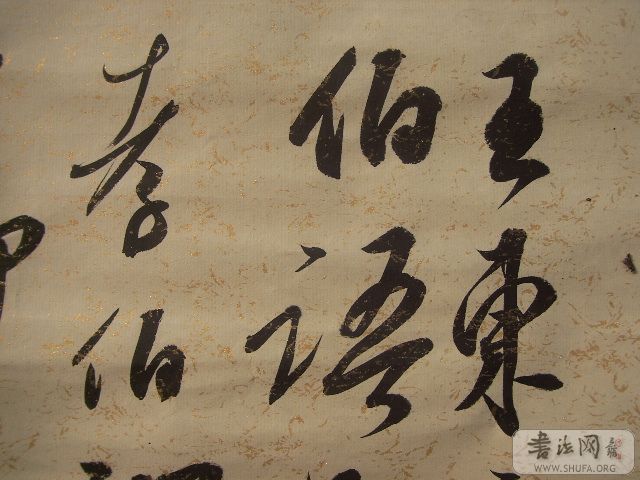 王東
伯語
孝伯
書法网
WWW.SHUFA.ORG